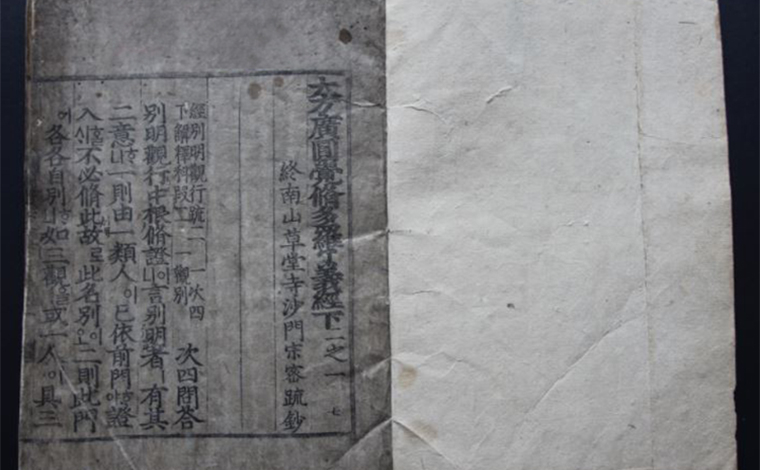 大方廣圓覺脩多羅了義經下二之一 七
終南山草堂寺沙門宗密疏鈔
經別明觀行疏二 一次四
下解釋科段二 一觀別 次四問答
別明觀行中根脩證이言別明者有其
二意니一則由一類人이已依前門야證
入신不必脩此故로此名別이오二則此門
에各各自別니如三觀을或一人이具三